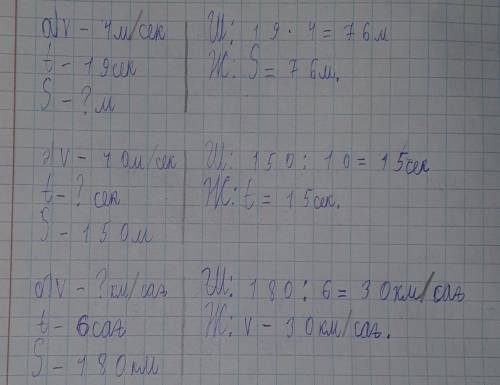 а) V - 4м/сек
t - 19сек
S - ? м
Ш: 19 · 4 = 76м
Ж: S = 76м.
ә) V - 10м/сек
t - ? сек
S - 150м
Ш: 150 : 10 = 15сек
Ж: t = 15сек.
б) V - ? км/сағ
t - 6сағ
S - 180км
Ш: 180 : 6 = 30км/сағ
Ж: V - 30км/сағ.